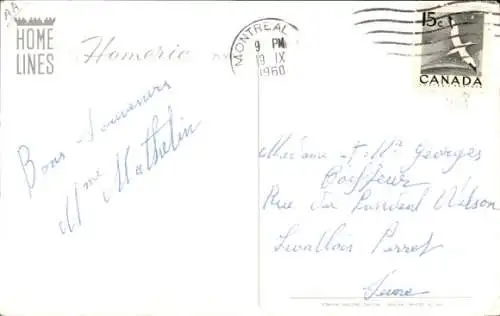 AA
HOME
LINES
Homeric
MONTREAL
9 PM
19 IX
1960
15c
CANADA
Bons Souvenirs
Mme Mathelin
Madame et Mr Georges
Coiffeur
Rue du Président Wilson
Levallois Perret
Seine